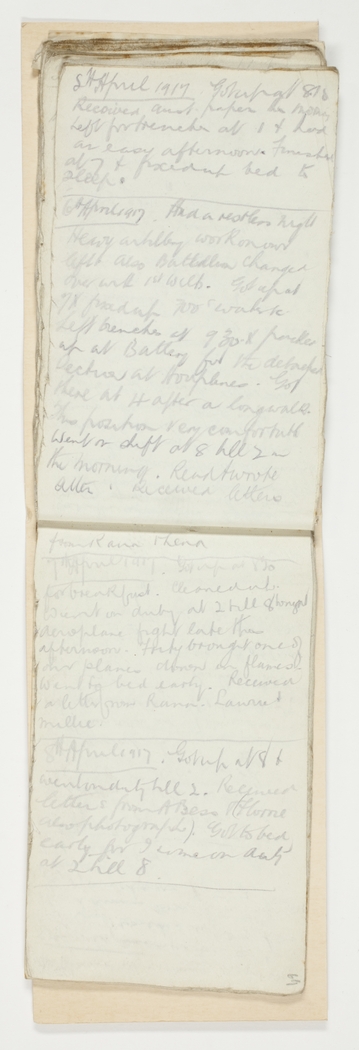 5th April 1917. Got up at 8
Received aust papers in morning
Left for trenches at 1 & had
an easy afternoon. Finished
at 7 & fixed up bed to
sleep.
6th April 1917. Had a restless night
Heavy artillery work on our
left also Battalion changed
over with 1st. Got up at
7 & fixed up
Left trenches at 9 30 & packed
up at Battery for the
section at. Got
there at 4 after a long walk.
This position very comfortable
Went on shift at 8 till 2 in
the morning. Read & wrote
letter. Received letters
from &
7th April 1917. Got up at 8
for breakfast. Cleaned up.
Went on duty at 2 till 8
aeroplane fight late this
afternoon. They brought one of
our planes down in flames.
Went to bed early. Received
a letter from Laurie &
Millie.
8th April 1917. Got up at 8 &
went on duty till 2. Received
letters from A Bess & Florrie
also photograph). Got to bed
early for I was on duty
at 2 till 8.